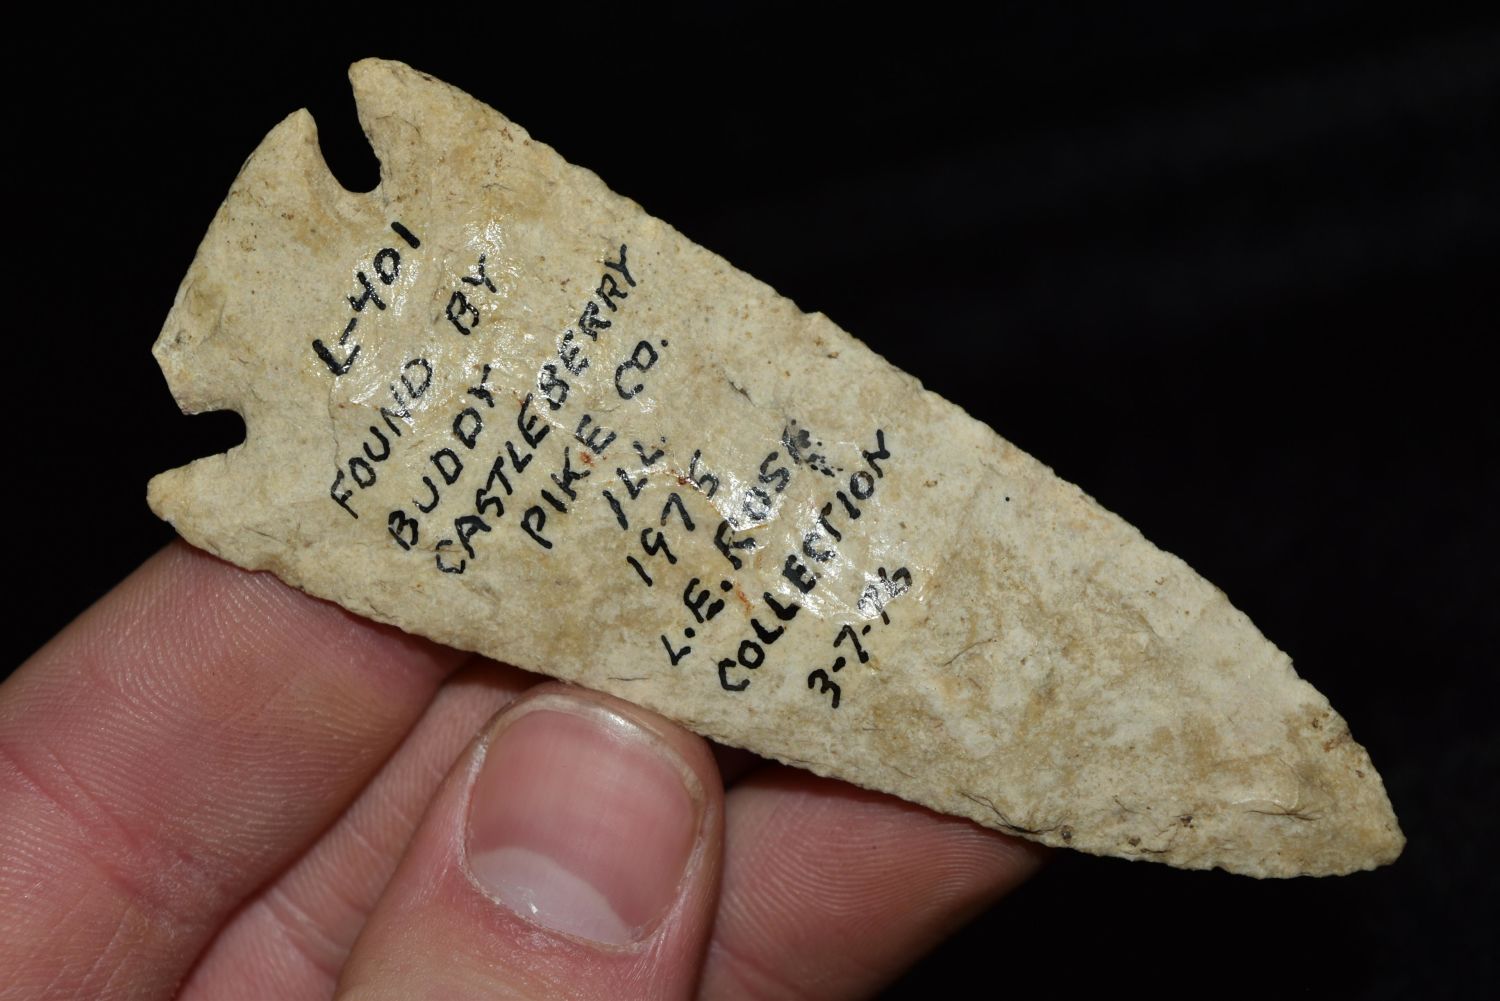 L-401
FOUND BY
BUDDY
CASTLEBERRY
PIKE CO.
ILL.
1975
L.E. ROSE
COLLECTION
3-7-76